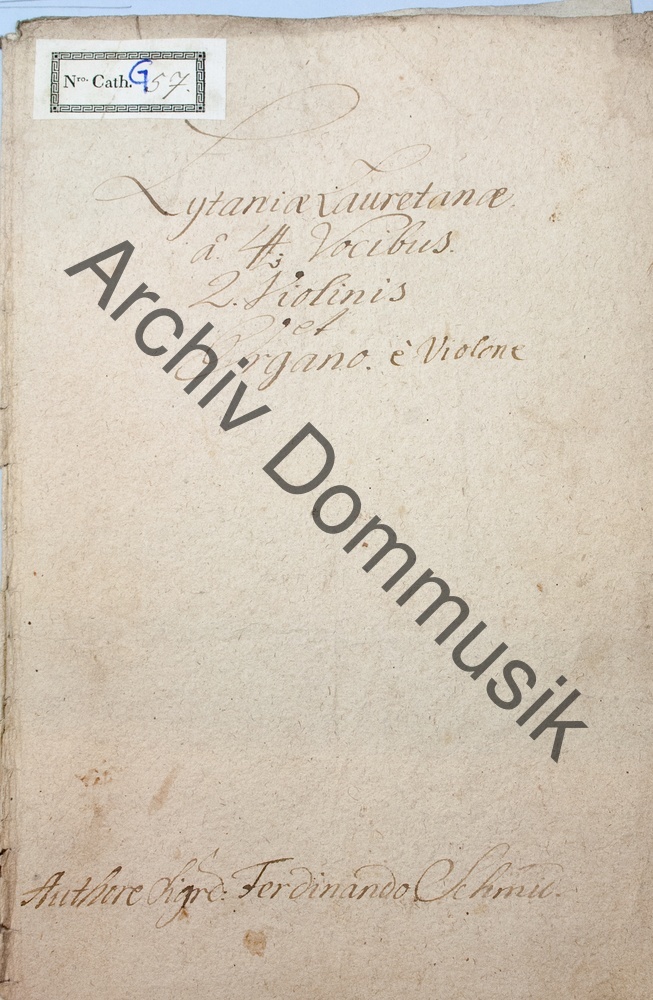 Nro. Cath. G 57.
Lytaniæ Lauretanæ.
â 4. Vocibus.
2. Violinis
et
Organo. è Violone
Archiv Dommusik
Authore Sigre: Ferdinando Schmid.